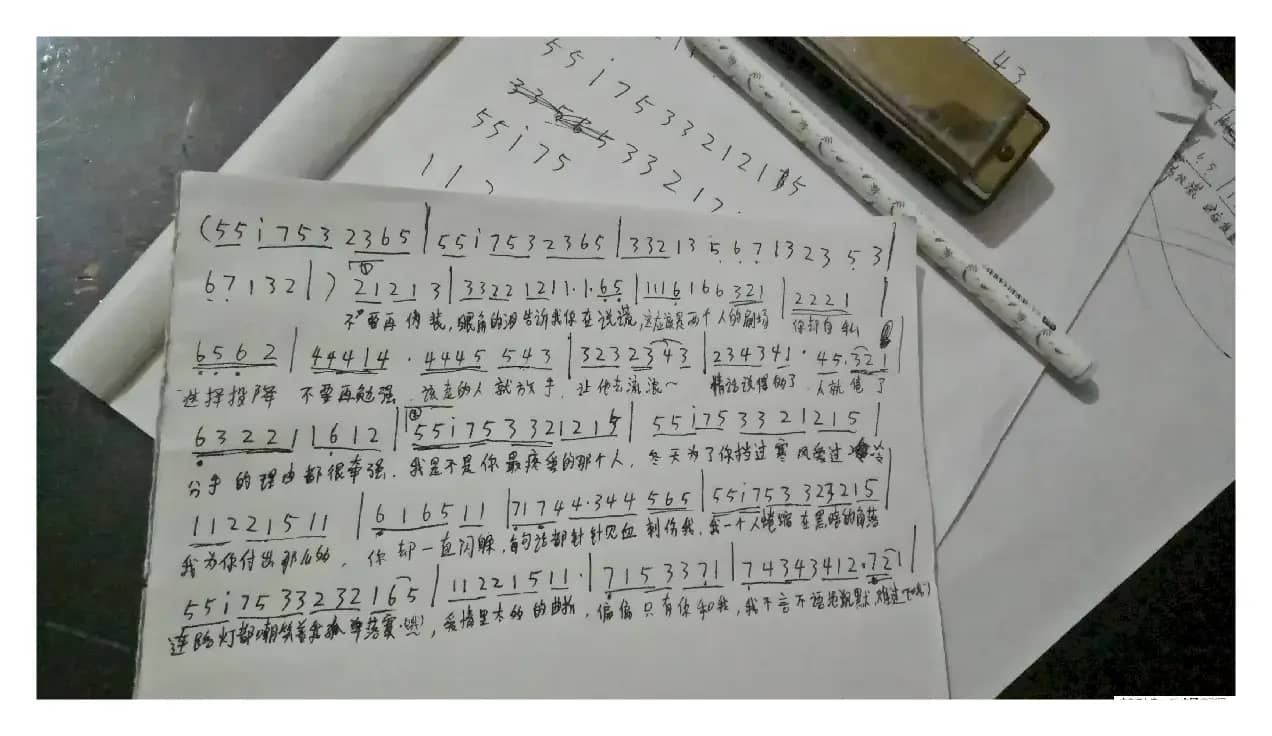 55i75332121 5
55i75 33212
112
43
(55i7532365|55i7532365|33213567132353|
67132|) ① 21213|332212111.1.65|1116166321|2221|
不要再伪装,眼角的泪告诉我你在说谎,这应该是两个人的剧场 你却自私
6562|44414·4445 543|3232343|234341·45.321|
选择投降 不要再勉强,该走的人就放手,让他去流浪~ 情话说得够了,人就倦了
632211612|② 55i7533212 15|55i7533212 15|
分手的理由都很牵强.我是不是你最疼爱的那个人,冬天为了你挡过寒风受过冷
11221511|616511|71744·344 565|55i753323215|
我为你付出那么多,你却一直闪躲,每句话都针针见血刺伤我,我一个人蜷缩在黑暗的角落
55i7533232165|11221511·|7153371|74343412·721|
连路灯都嘲笑着我孤单落寞,爱情里 的曲折,偏偏只有你和我,我不言不语 沉默难过